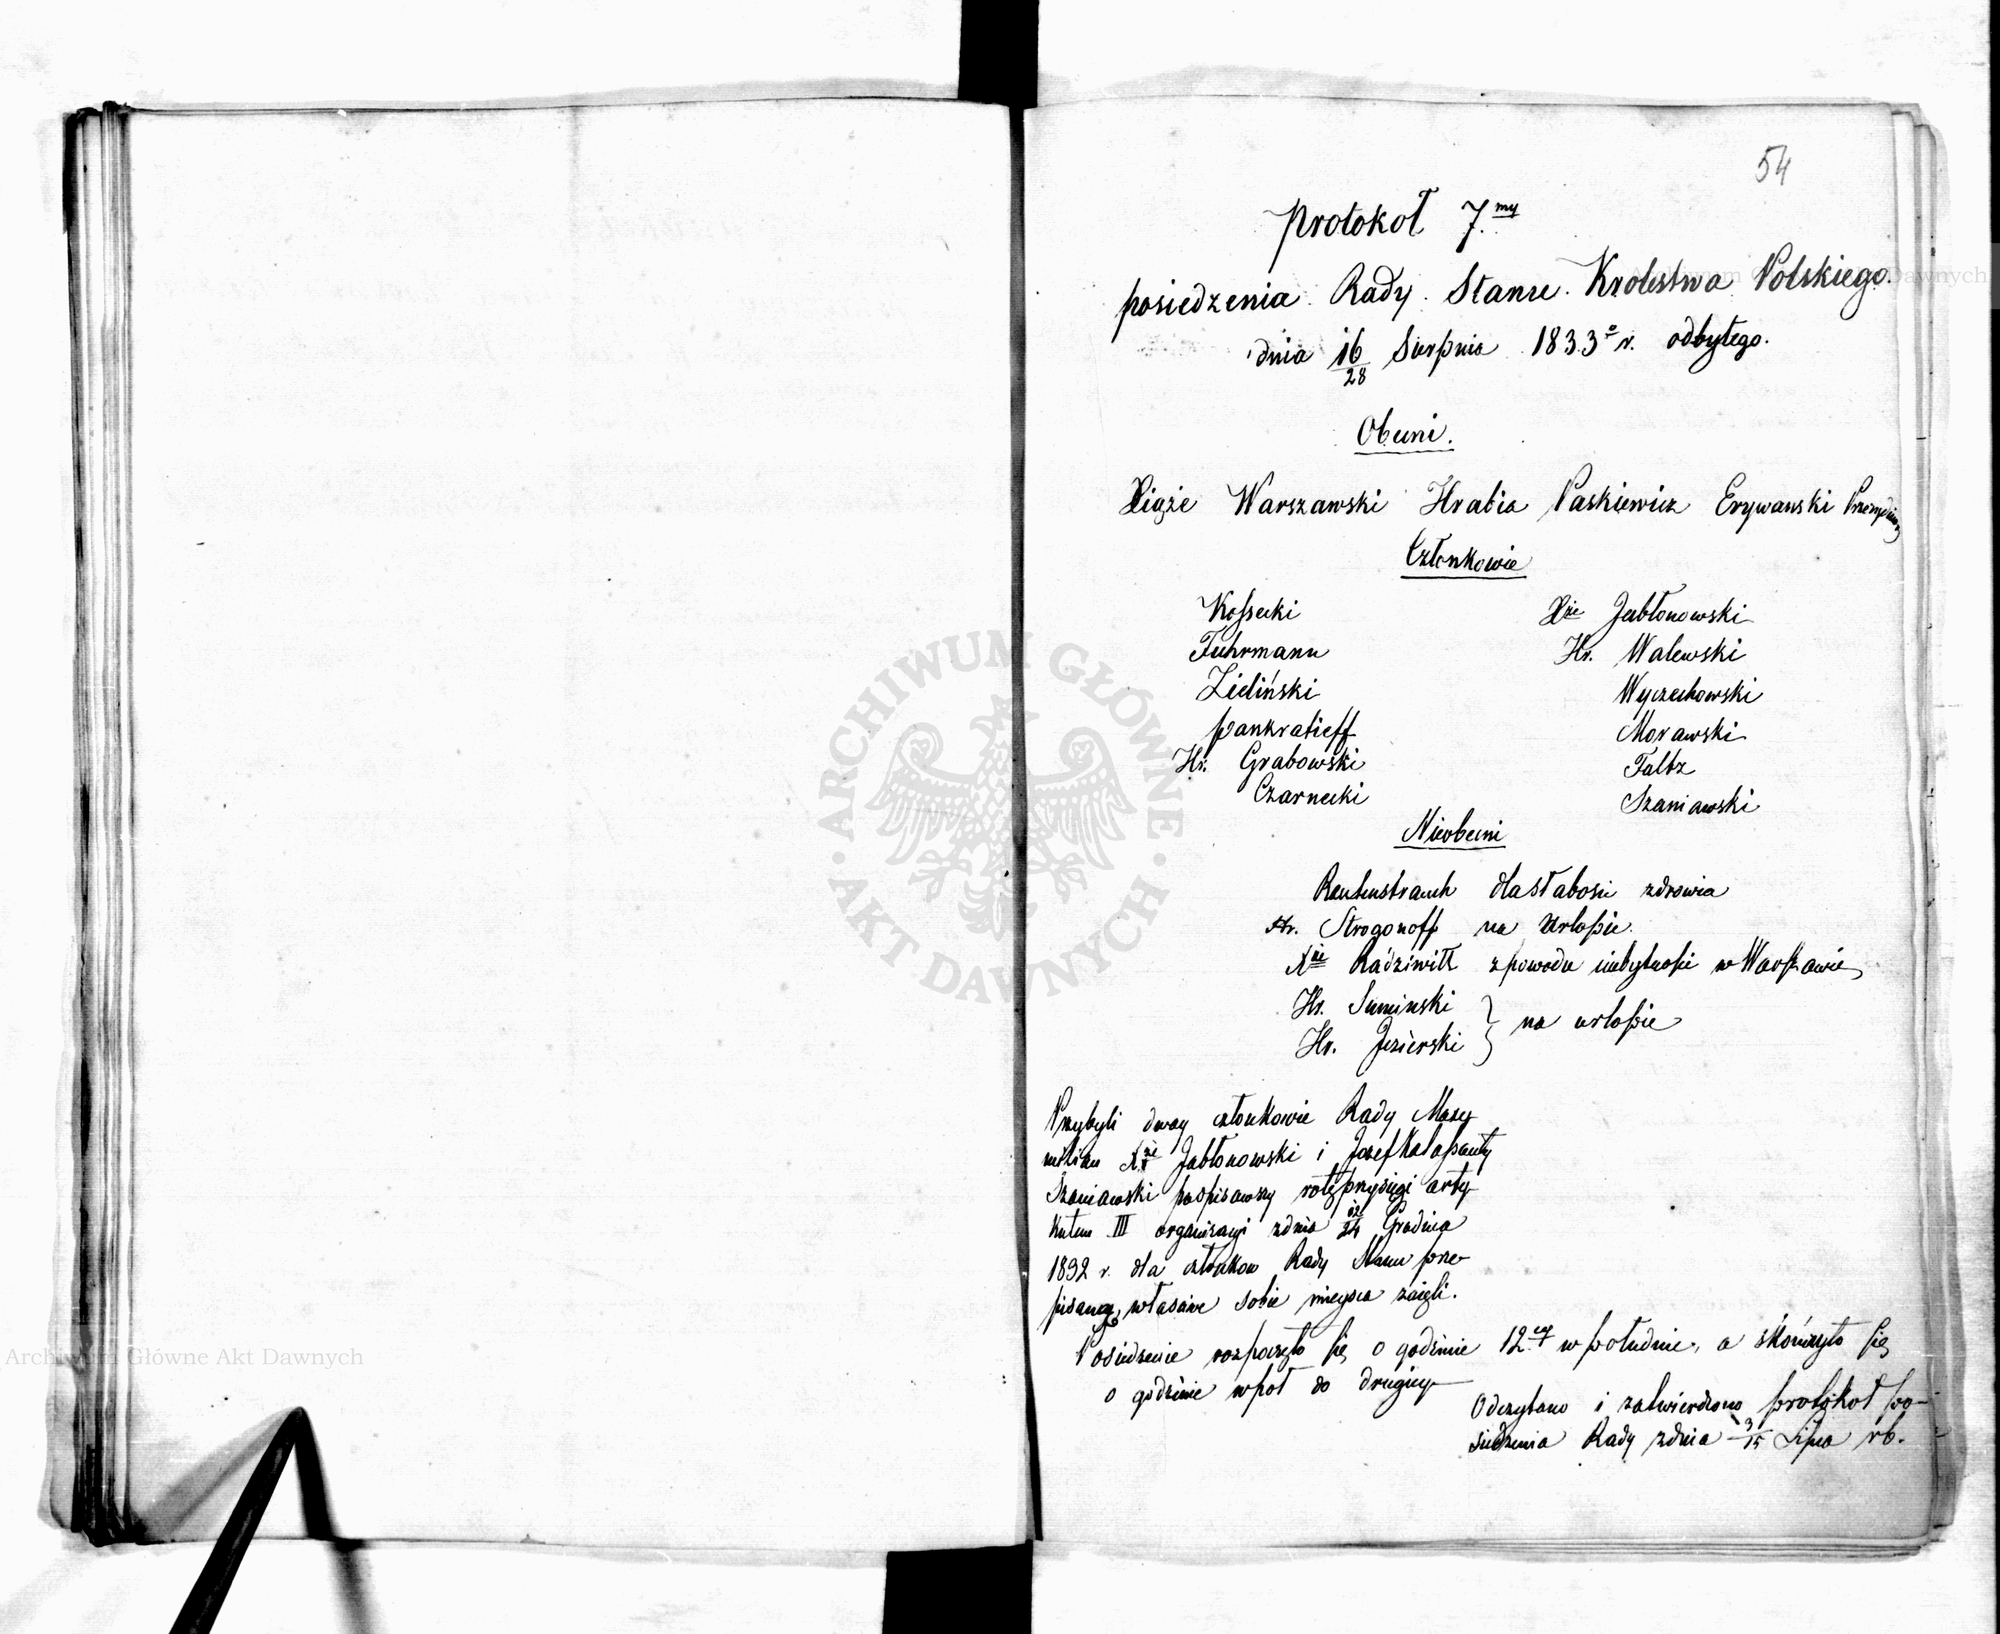 54
Protokoł 7.my
posiedzenia Rady Stanu Krolestwa Polskiego.
dnia 16/28 Sierpnia 1833o r. odbytego.
Obecni.
Xiąże Warszawski Hrabia Paskiewicz Erywański Prezydując
Członkowie
Kossecki
Xże Jabłonowski
Fuhrmann
Hr. Walewski
Zieliński
Wyczechowski
Pankratieff
Morawski
Hr. Grabowski
Faltz
Czarnecki
Szaniawski
Nieobecni
Rautenstrauch dla słabości zdrowia
Hr. Strogonoff na Urlopie.
Xże Radziwiłł z powodu niebytności w Warszawie
Hr. Suminski
Hr. Jezierski
na urlopie
Przybyli dway członkowie Rady Maxy
milian Xże Jabłonowski i Jozef Kalasanty
Szaniawski podpisawszy rotę przysięgi arty
kułem III organizacyi z dnia 12/24 Grudnia
1832 r. dla członkow Rady Stanu prze
pisaną, właściwe sobie mieysca zaięli.
Posiedzenie rozpoczęło się o godzinie 12ey w południe, a skończyło się
o godzinie wpoł do drugiey
Odczytano i zatwierdzono protokoł po-
siedzenia Rady z dnia 3/15 Lipca rb.
ARCHIWUM GŁÓWNE AKT DAWNYCH
Archiwum Główne Akt Dawnych